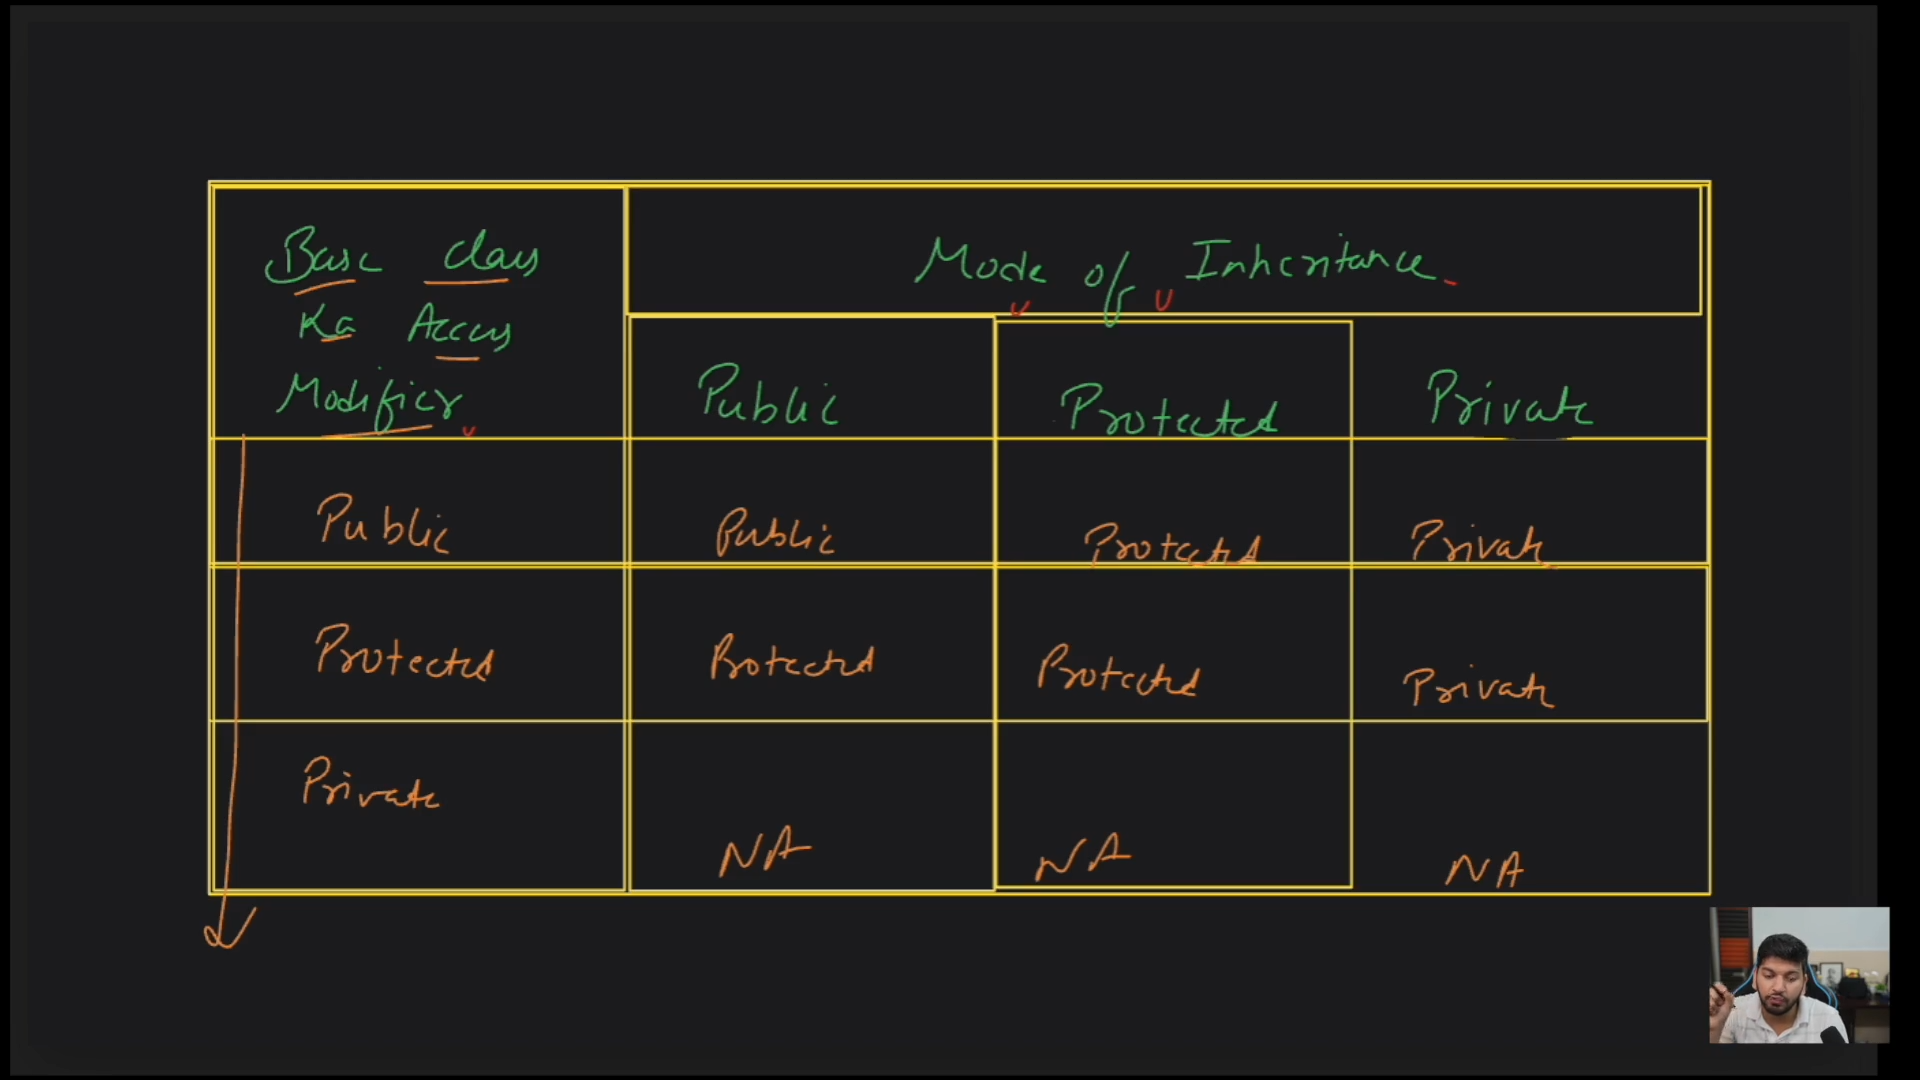 Base class
Ka Access
Modifier
Mode of Inheritance
Public Protected Private
Public Public Protected Private
Protected Protected Protected Private
Private
NA NA NA